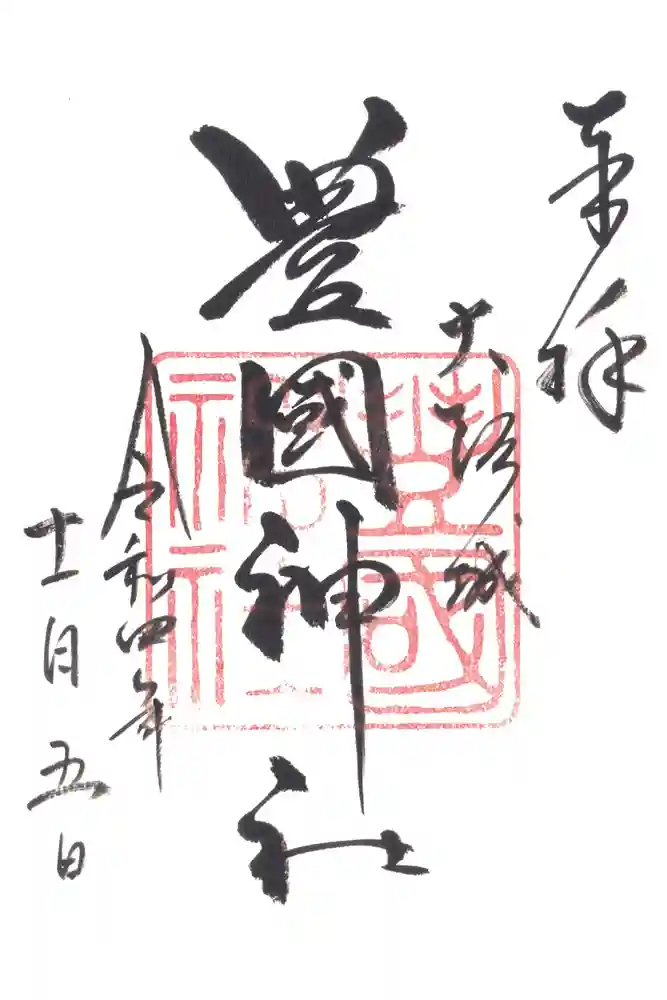 奉拝
大阪城
豊國神社
令和四年
十一月五日
豐國神社